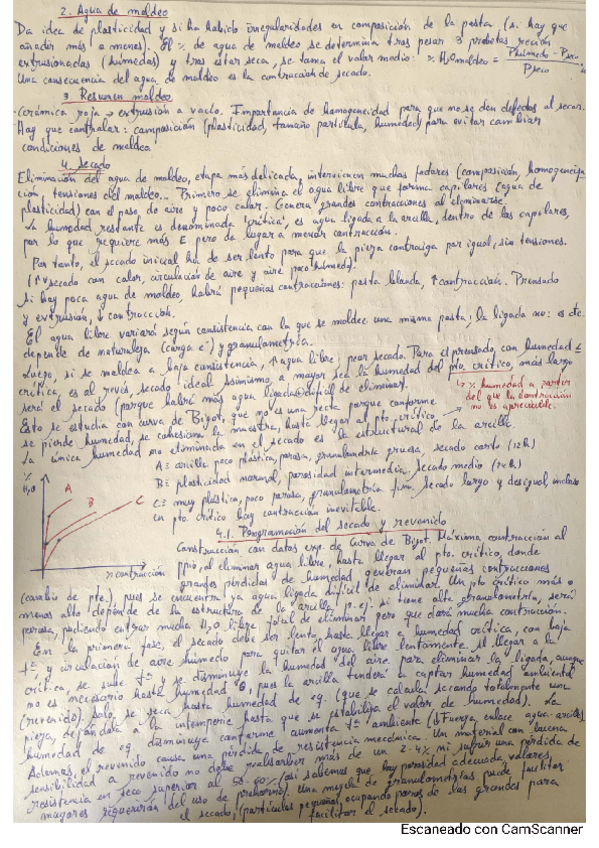 2. Agua de moldeo
Da idea de plasticidad y si ha habido irregularidades en composición de la pasta (si hay que
añadir más o menos). El % de agua de moldeo se determina tras pesar 3 probetas recién
extrusionadas (húmedas) y tras estar seca, se toma el valor medio: % H₂O moldeo = Phúmedo - Pseco / Pseco
Una consecuencia del agua de moldeo es la contracción de secado.
3. Resumen moldeo
Cerámica roja → extrusión a vacío. Importancia de homogeneidad para que no se den defectos al secar.
Hay que controlar: composición (plasticidad, tamaño partícula, humedad) para evitar cambiar
condiciones de moldeo.
4. Secado
Eliminación del agua de moldeo, etapa más delicada, intervienen muchos factores (composición, homogeneiza
ción, tensiones del moldeo... Primero se elimina el agua libre que forma capilares (agua de
plasticidad) con el paso de aire y poco calor. Genera grandes contracciones al eliminarse.
La humedad restante es denominada "crítica", es agua ligada a la arcilla, dentro de los capilares,
por lo que requiere más E pero da lugar a menor contracción.
Por tanto, el secado inicial ha de ser lento para que la pieza contraiga por igual, sin tensiones.
(↑v secado con calor, circulación de aire y aire poco húmedo).
Si hay poca agua de moldeo, habrá pequeñas contracciones: pasta blanda, ↑ contracción. Prensado
y extrusión, ↓ contracción.
El agua libre variará según consistencia con la que se moldee una misma pasta; la ligada no: es cte.
depende de naturaleza (carga e⁻) y granulometría.
Luego, si se moldea a baja consistencia, ↑ agua libre, peor secado. Para el prensado con humedad ≤
crítica, es al revés, secado ideal. Asimismo, a mayor sea la humedad del pto. crítico, más largo
será el secado (porque habrá más agua ligada difícil de eliminar).
↳ % humedad a partir
del que la contracción
no es apreciable.
Esto se estudia con curva de Bigot, que no es una recta porque conforme
se pierde humedad, se cohesiona la muestra, hasta llegar al pto. crítico.
La única humedad no eliminada en el secado es la estructural de la arcilla.
% H₂O
A
B
C
% contracción
A ≡ arcilla poco plástica, porosa, granulometría gruesa, secado corto (12h)
B ≡ plasticidad normal, porosidad intermedia, secado medio (24h)
C ≡ muy plástica, poco porosa, granulometría fina, secado largo y desigual, incluso
en pto. crítico hay contracción inevitable.
4.1. Programación del secado y revenido
Construcción con datos exp. de Curva de Bigot. Máxima contracción al
ppio, al eliminar agua libre, hasta llegar al pto. crítico, donde
grandes pérdidas de humedad generan pequeñas contracciones
(cambio de pte.) pues se encuentra ya agua ligada difícil de eliminar. Un pto crítico más o
menos alto depende de la estructura de la arcilla p.ej. si tiene alta granulometría, será
porosa, pudiendo entrar mucha H₂O libre fácil de eliminar pero que dará mucha contracción.
En la primera fase, el secado debe ser lento, hasta llegar a humedad crítica, con baja
tª, y circulación de aire húmedo para quitar el agua libre lentamente. Al llegar a la
crítica, se sube tª y se disminuye la humedad del aire para eliminar la ligada, aunque
no es necesario hasta humedad 0, pues la arcilla tenderá a captar humedad ambiental
(revenido). Solo se seca hasta humedad de eq. (que se calcula secando totalmente una
pieza, dejándola a la intemperie hasta que se estabiliza el valor de humedad). La
humedad de eq. disminuye conforme aumenta tª ambiente (↓ Fuerza enlace agua-arcilla)
Además, el revenido causa una pérdida de resistencia mecánica. Un material con buena
sensibilidad a revenido no debe reabsorber más de un 2-4% ni sufrir una pérdida de
resistencia en seco superior al 55-60% (así sabemos que hay porosidad adecuada, valores
mayores requerirán del uso de prehorno). Una mezcla de granulometrías puede facilitar
el secado, (partículas pequeñas, ocupando poros de las grandes para
facilitar el secado).
Escaneado con CamScanner